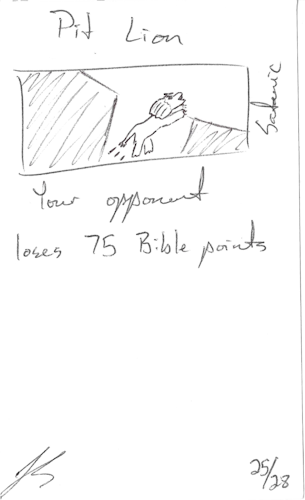 Pit Lion
Satanic
Your opponent
loses 75 Bible points
25/28